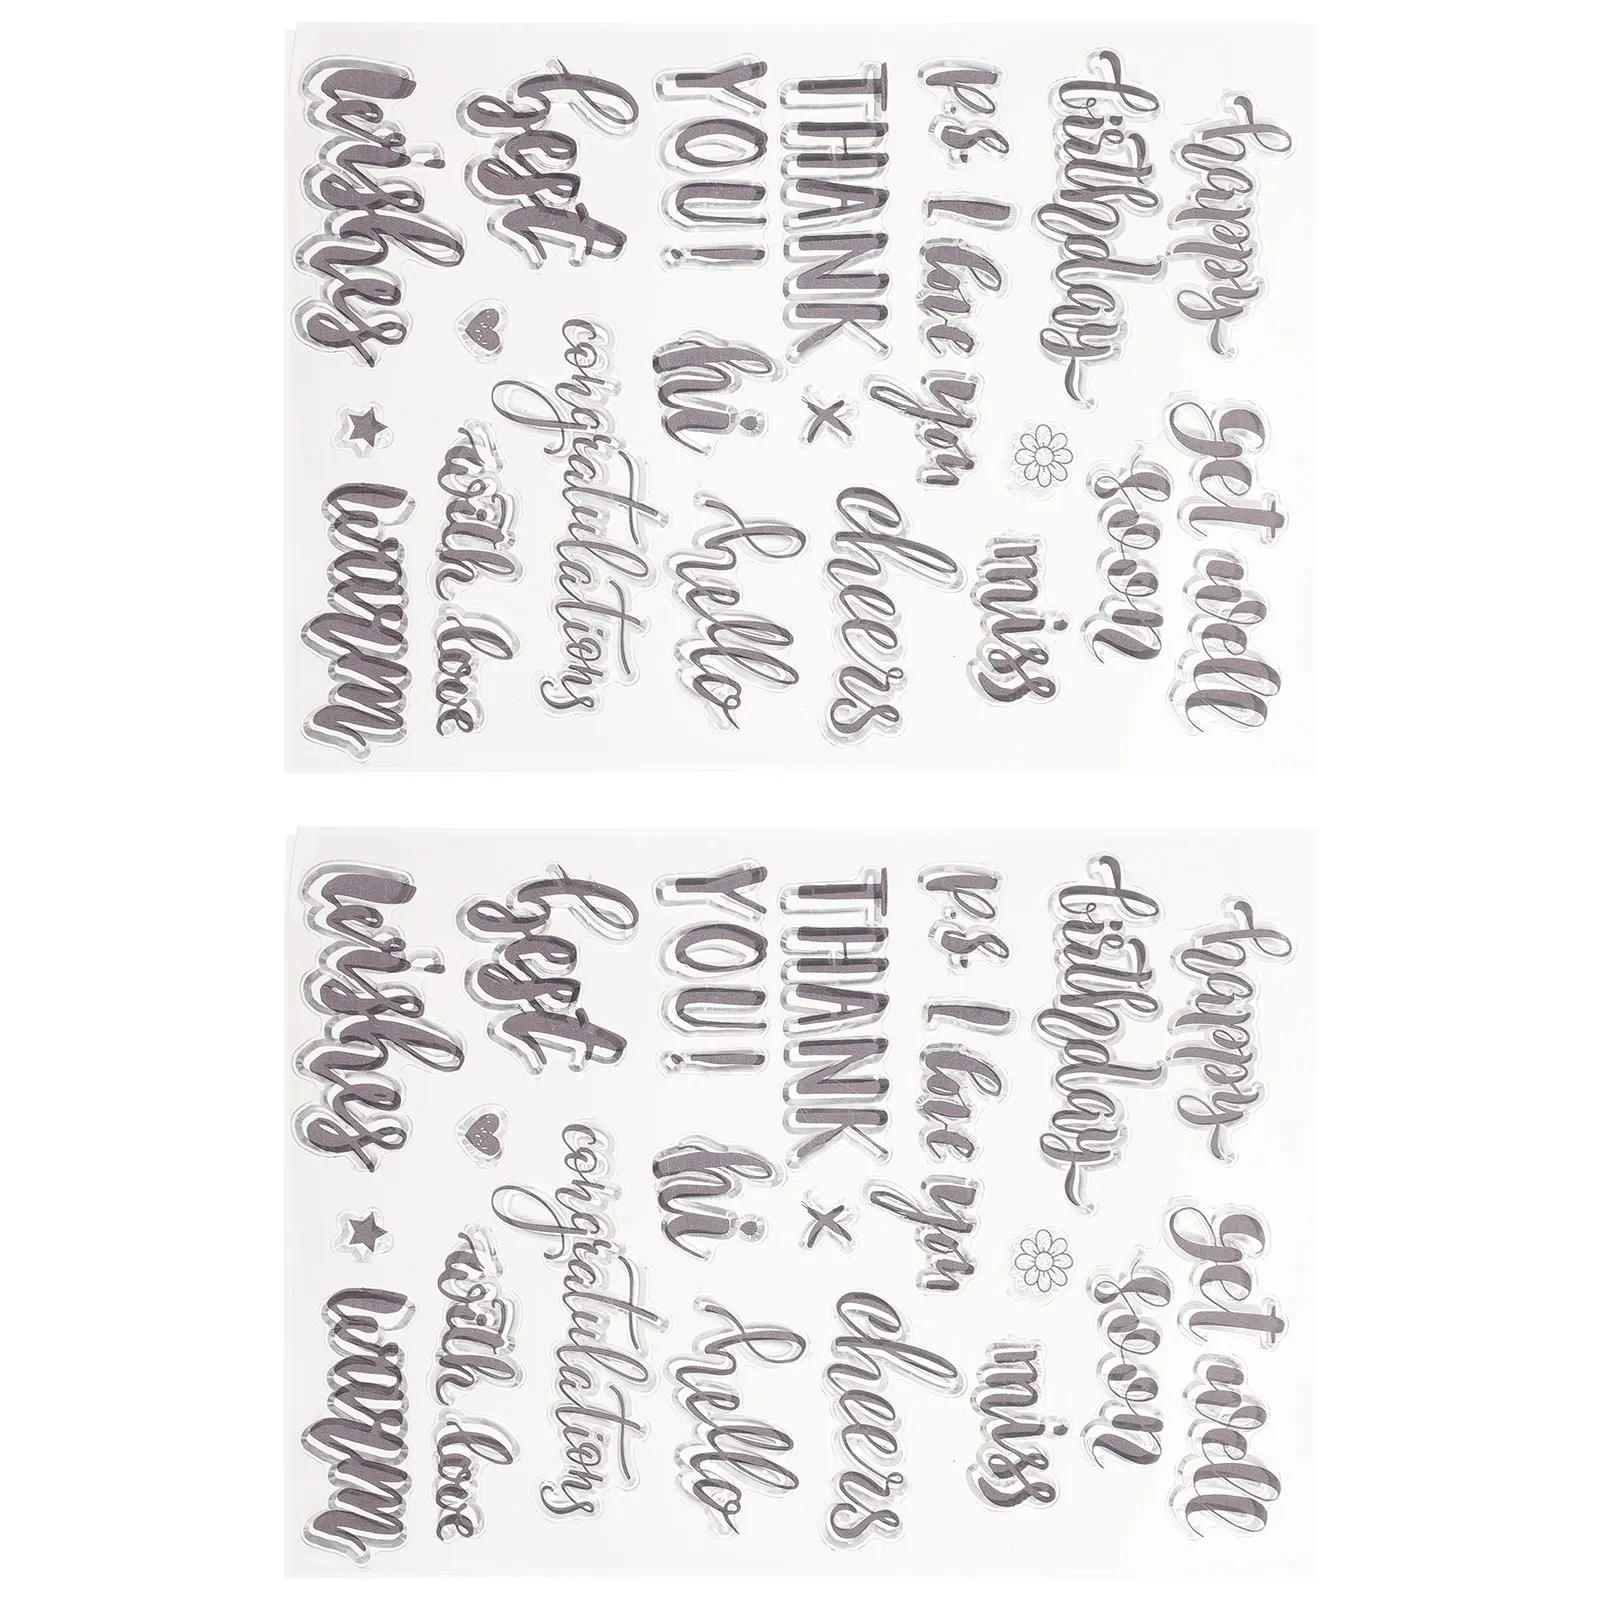 happy
get well
birthday
soon
p.s. I love you
miss
THANK
x
cheers
YOU!
hi
hello
best
congratulations
with love
wishes
warm
happy
get well
birthday
soon
p.s. I love you
miss
THANK
x
cheers
YOU!
hi
hello
best
congratulations
with love
wishes
warm